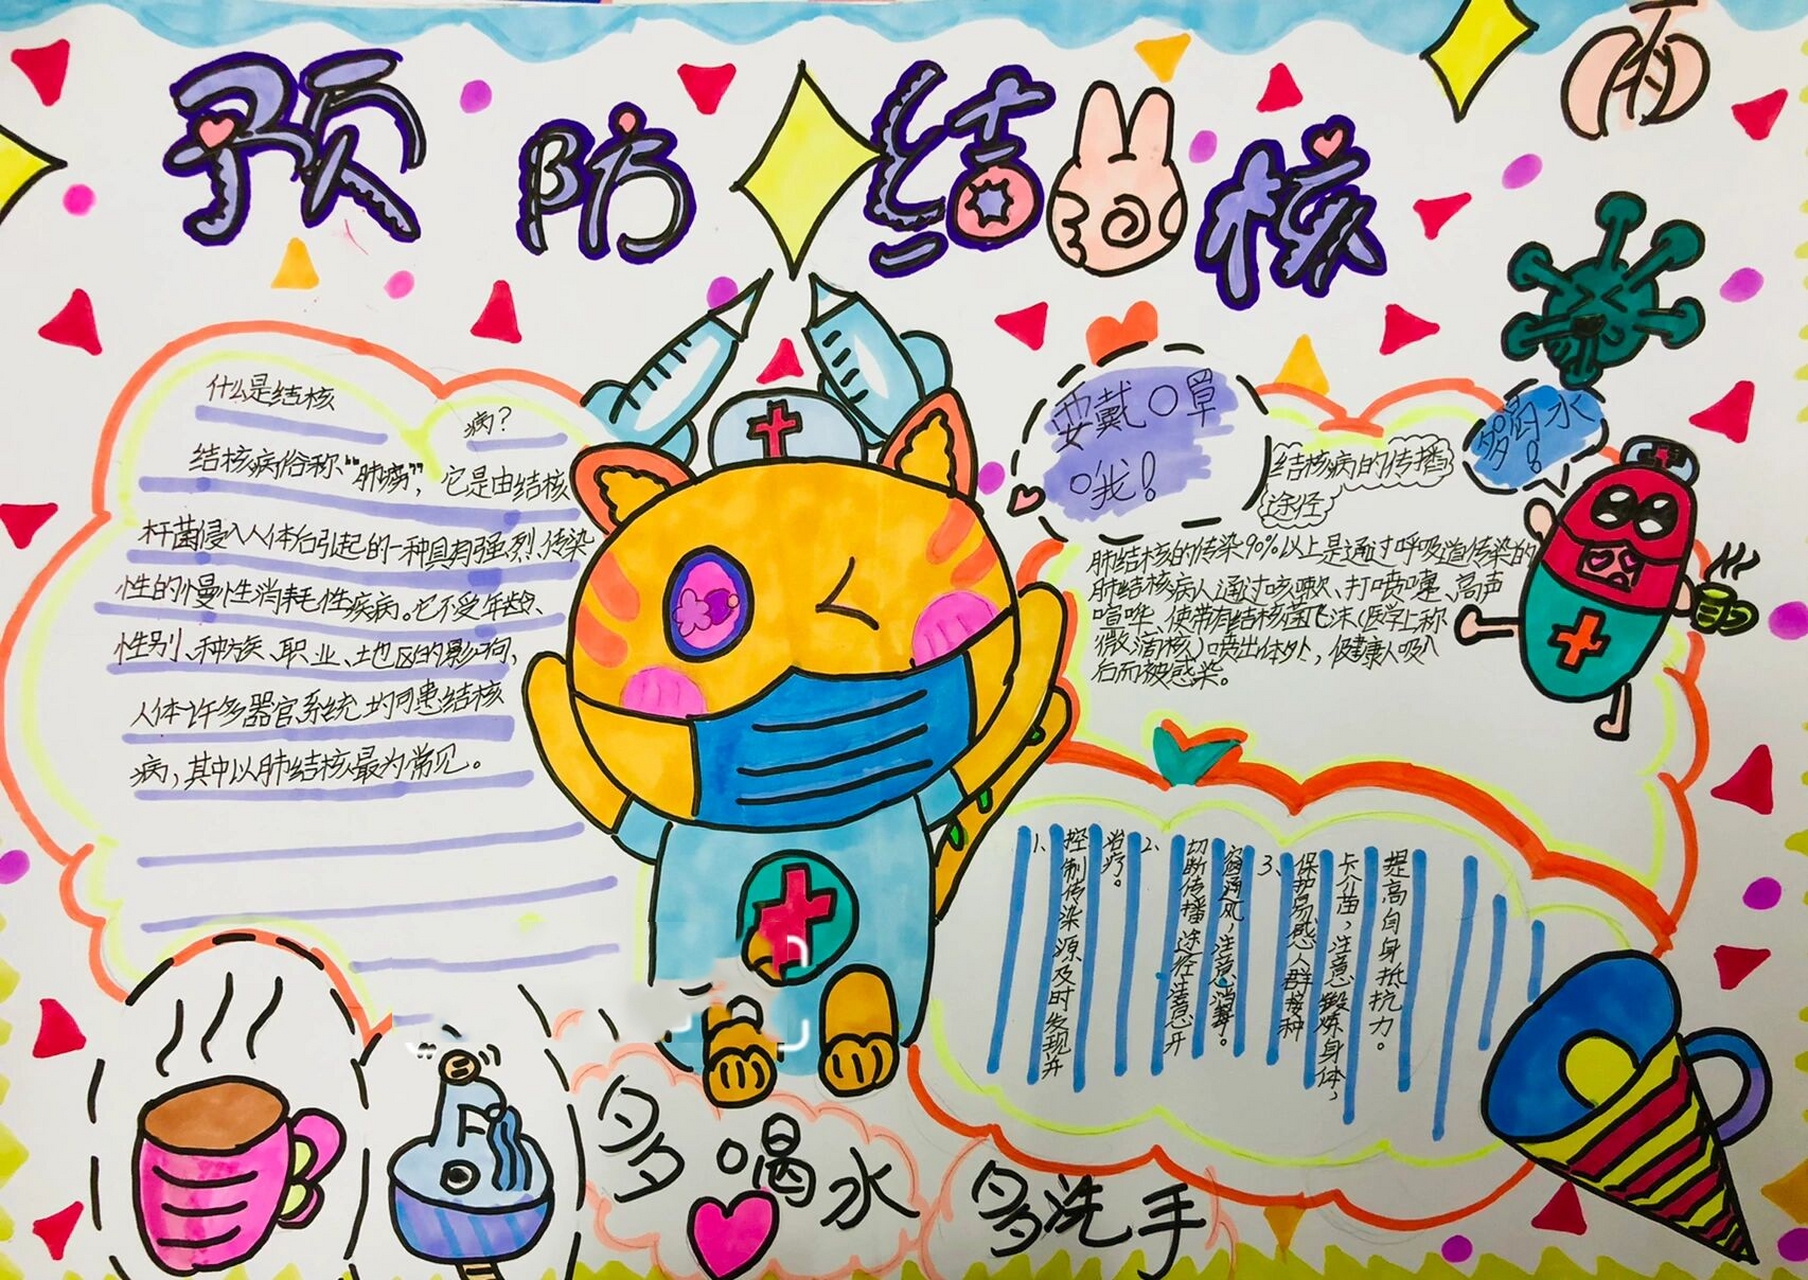 预防结核
要戴口罩
哦!
多喝水
!
什么是结核
病?
结核病俗称“肺痨”,它是由结核
杆菌侵入人体后引起的一种具有强烈传染
性的慢性消耗性疾病。它不受年龄、
性别、种族、职业、地区的影响,
人体许多器官系统均可患结核
病,其中以肺结核最为常见。
结核病的传播
途径
肺结核的传染90%以上是通过呼吸道传染的
肺结核病人通过咳嗽、打喷嚏、高声
喧哗、使带有结核菌飞沫(医学上称
微滴核)喷出体外,健康人吸入
后而被感染。
1、控制传染源及时发现并
治疗。
2、切断传播途径注意开
窗通风,注意消毒。
3、保护易感人群接种
卡介苗,注意锻炼身体,
提高自身抵抗力。
多喝水
多洗手